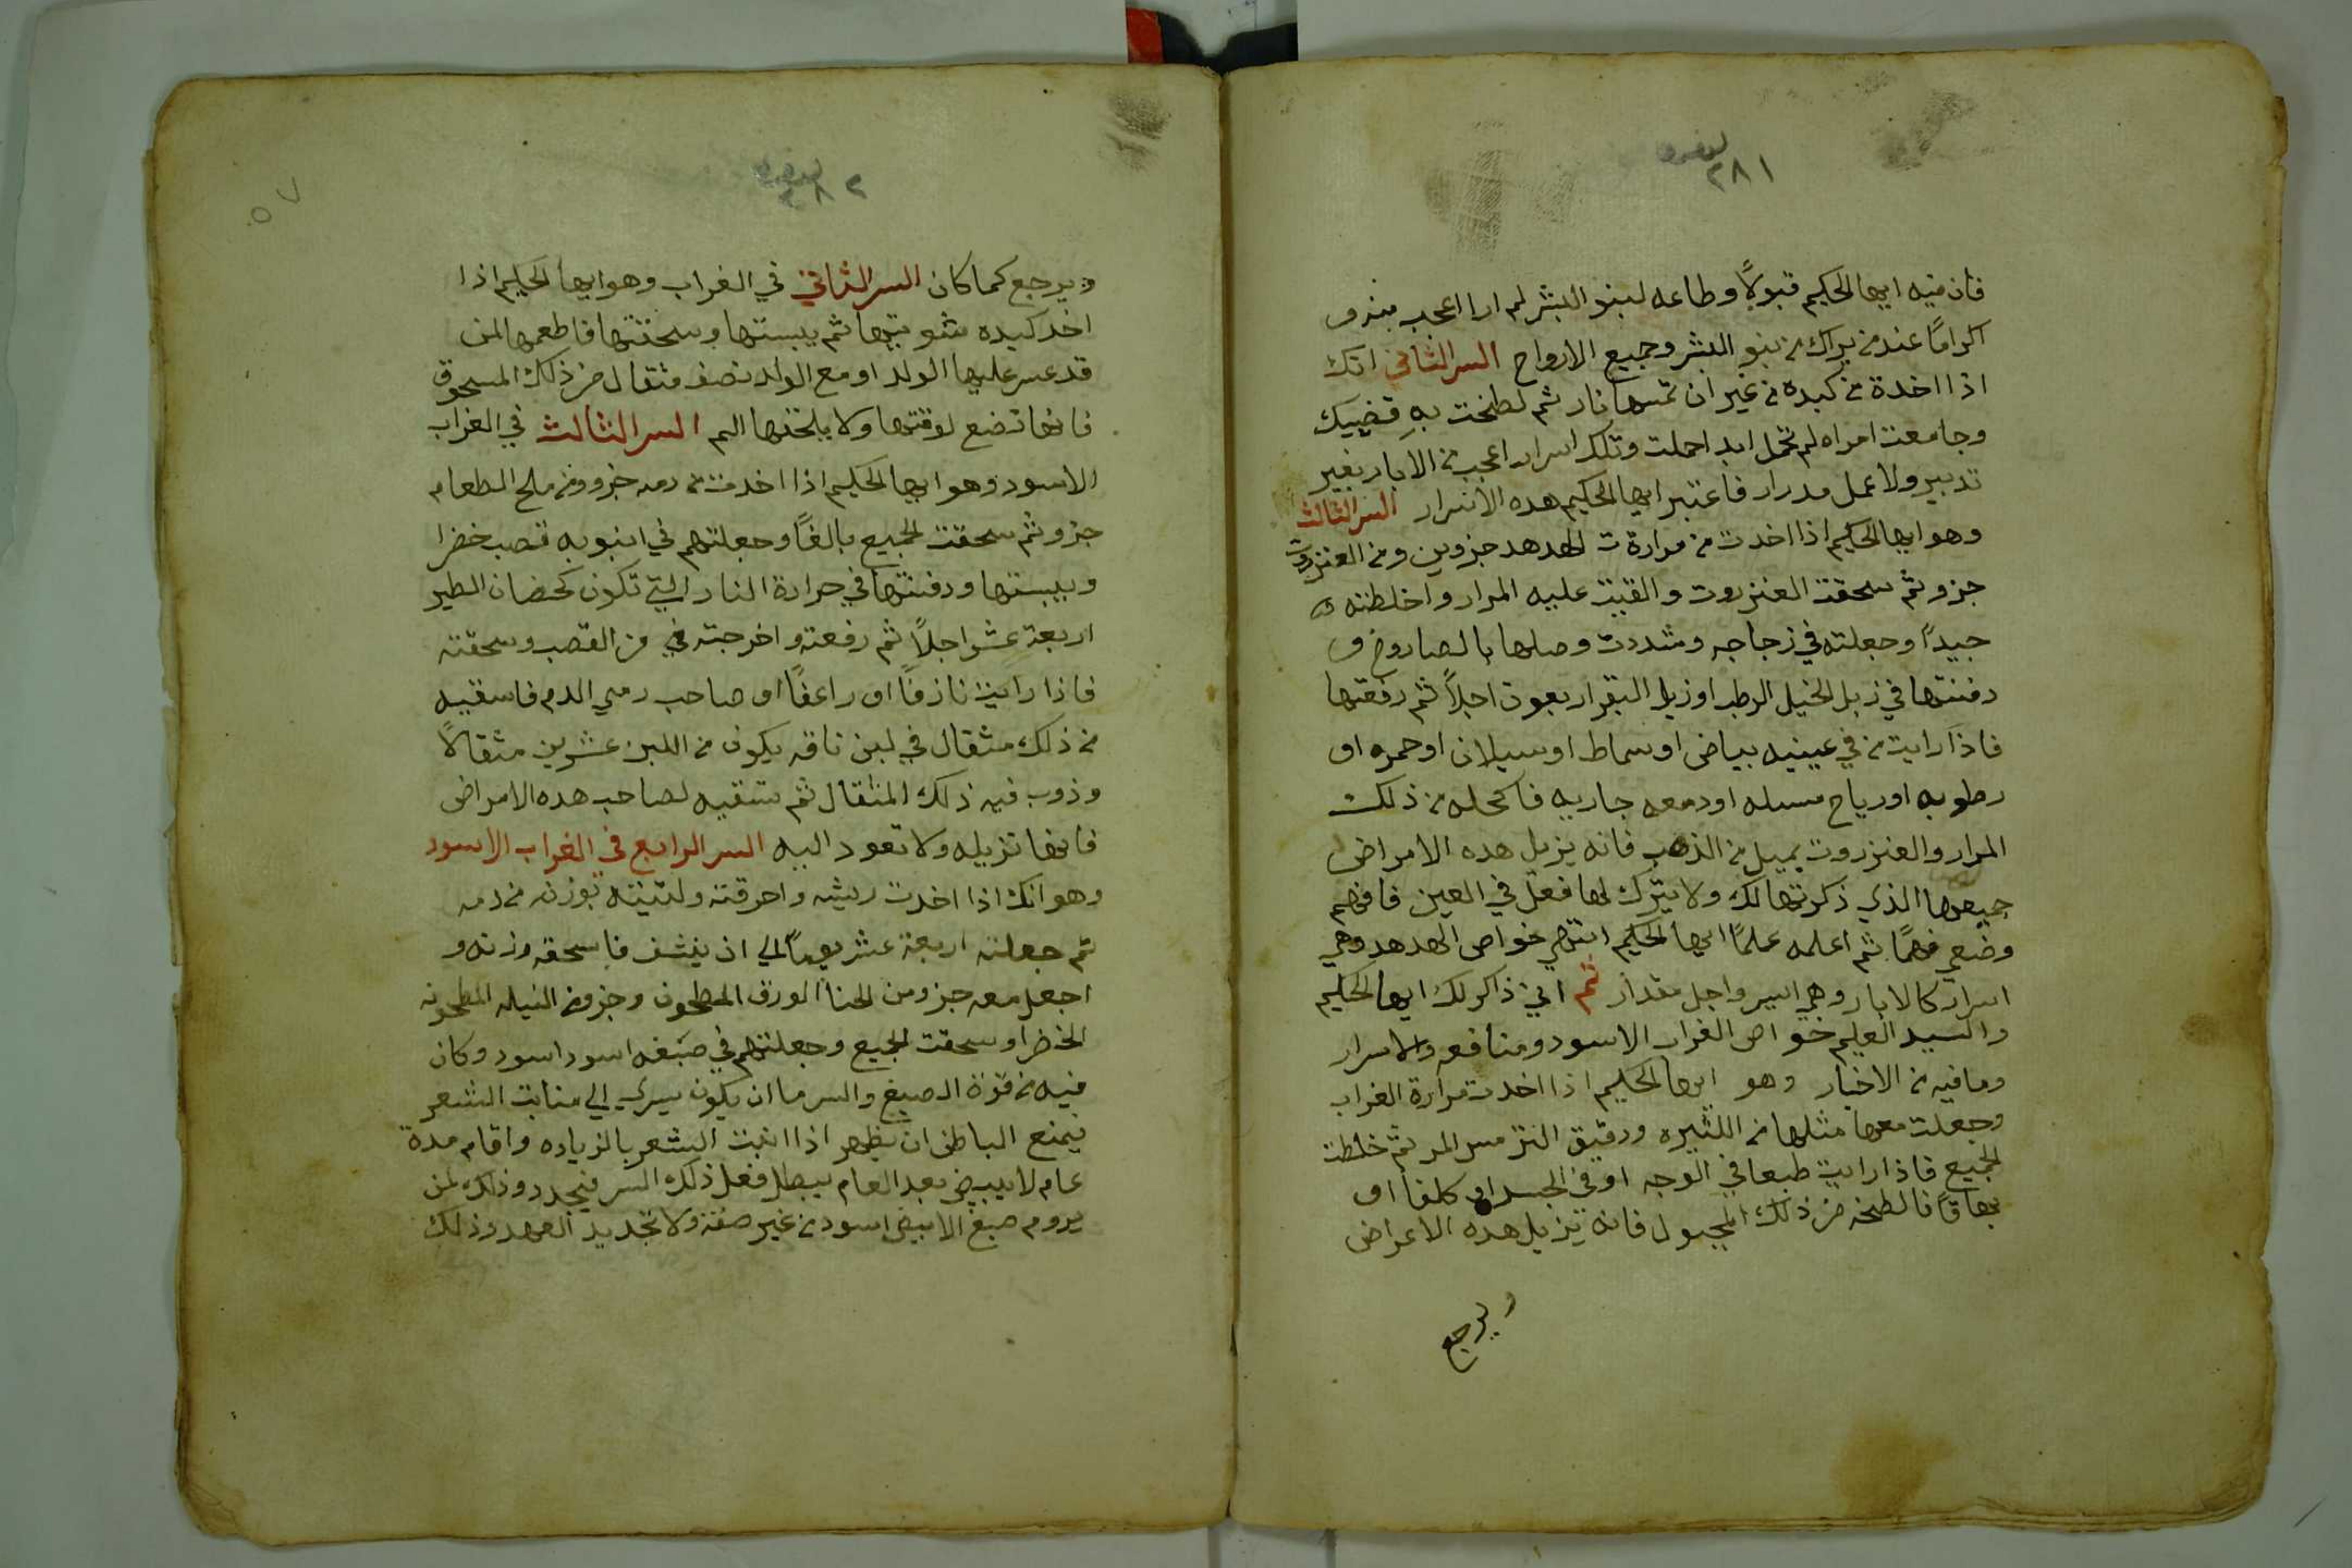 ٢٨١
فان فيه ايها الحكيم قبولاً وطاعه لبنو البشر لم ارا اعجب منه و
اكراماً عند من يراك من بنو البشر وجميع الارواح السر الثاني انك
اذا اخدة من كبده من غير ان تمسها نار ثم لطخت بهِ قضيبك
وجامعت امراه لم تحمل ابد احملت وتلك اسرار اعجب من الابار بغير
تدبير ولا عمل مدرار فاعتبر ايها الحكيم هده الاسرار السر الثالث
وهو ايها الحكيم اذا اخدت من مرارة ت الهدهد جزوين ومن العنزروت
جزو ثم سحقت العنزروت والقيت عليه المرار واخلطته
جيداً وجعلته في زجاجه وشددت وصلها بالصاروج و
دفنتها في زبل الخيل الرطب اوزبل البقر اربعون اجلاً ثم رفعتها
فاذا رايت من في عينيه بياض او سماط او سيلان او حمره او
رطوبه او رياح مسبله او دمعه جاريه فاكحله من ذلك
المرار والعنزروت بميل من الذهب فانه يزيل هده الامراض
جميعها الذي ذكرتها لك ولا يترك لها فعل في العين فافهم
وضعي فهماً ثم اعلمه علماً ايها الحكيم انتهي خواص الهدهد وهي
اسرار كالابار وهي ايسر واجل مقدار ثم اني ذاكر لك ايها الحكيم
والسيد العليم خواص الغراب الاسود ومنافعه والاسرار
ومافيه من الاخبار وهو ايها الحكيم اذا اخدت مرارة الغراب
وجعلت معها مثلها من الكثيره ودقيق الترمس المر ثم خلطت
الجميع فاذا رايت طبعا في الوجه او في الجسد او كلفا او
بهاقاً فالطخه من ذلك المجبول فانه يزيل هده الاعراض
ويرجع
٢٨٢
٥٧
ويرجع كما كان السر الثاني في الغراب وهو ايها الحكيم اذا
اخد كبده شويتها ثم يبستها وسحقتها فاطعمها لمن
قد عسر عليها الولد او مع الولد نصف مثقال من ذلك المسحوق
فانها تضع لوقتها ولا يلحقها الم السر الثالث في الغراب
الاسود وهو ايها الحكيم اذا اخدت من دمه جزو ومن ملح الطعام
جزو ثم سحقت الجميع بالغاً وجعلتهم في انبوبه قصب خضرا
ويبستها ودفنتها في حرارة النار التي تكون كحضان الطير
اربعة عشر اجلاً ثم رفعته واخرجته في من القصب وسحقته
فاذا رايت نازفاً او راعفاً او صاحب رمي الدم فاسقيه
من ذلك مثقال في لبن ناقه يكون من اللبن عشرين مثقالاً
وذوب فيه ذلك المثقال ثم تسقيه لصاحب هده الامراض
فانها تزيله ولا تعود اليه السر الرابع في الغراب الاسود
وهو انك اذا اخدت ريشه واحرقته ولتيته بوزنه من دمه
ثم جعلته اربعة عشر يوماً الي ان ينشف فاسحقه وزنه و
اجعل معه جزو من الحنا الورق المطحون وجزو من النيله المطحونه
الخضرا وسحقت الجميع وجعلتهم في صبغه اسود اسود وكان
فيه من قوة الصبغ والسر ما ان يكون يسري الي منابت الشعر
يمنع الباطن ان يظهر اذا انبت الشعر بالزياده واقام مدة
عام لا يبيض بعد العام يبطل فعل ذلك السر فيجدد وذلك لمن
يروم صبغ الابيض اسود من غير صفة ولا تجديد العهد وذلك